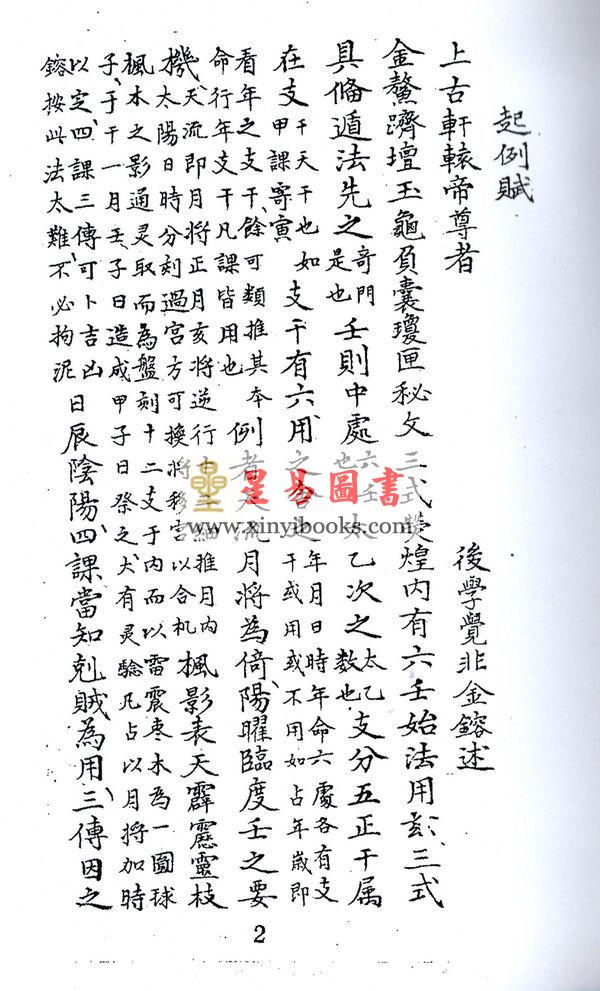 起例賦
後學覺非金鎔述
上古軒轅帝尊者
金鰲躋壇玉龜負囊瓊匣秘文三式奧式煌内有六壬始法用彰三式
具備遁法先之奇門是也壬則中處六壬也太乙次之太乙數也支分五正干属
在支干天干也如甲課寄寅支干有六用之年月日時年命六處各有支干或用或不用如占年歲即
看年之支干餘可類推其本命行年支干凡課皆用也例者天流月將為倚陽曜臨度壬之要
機天流即月將正月亥將逆行十二推月内太陽日時分刻過宮方可換將移宮以合机楓影表天霹靂靈枝
楓木之影通灵取而為盤刻十二支于内而以雷震枣木為一圓球
子于十一月壬子日造成甲子日祭之大有灵驗凡占以月將加時
以定四課三傳可卜吉凶鎔按此法太難不必拘泥日辰陰陽四課當知剋賊為用三傳因之
星易圖書
www.xinyibooks.com
2